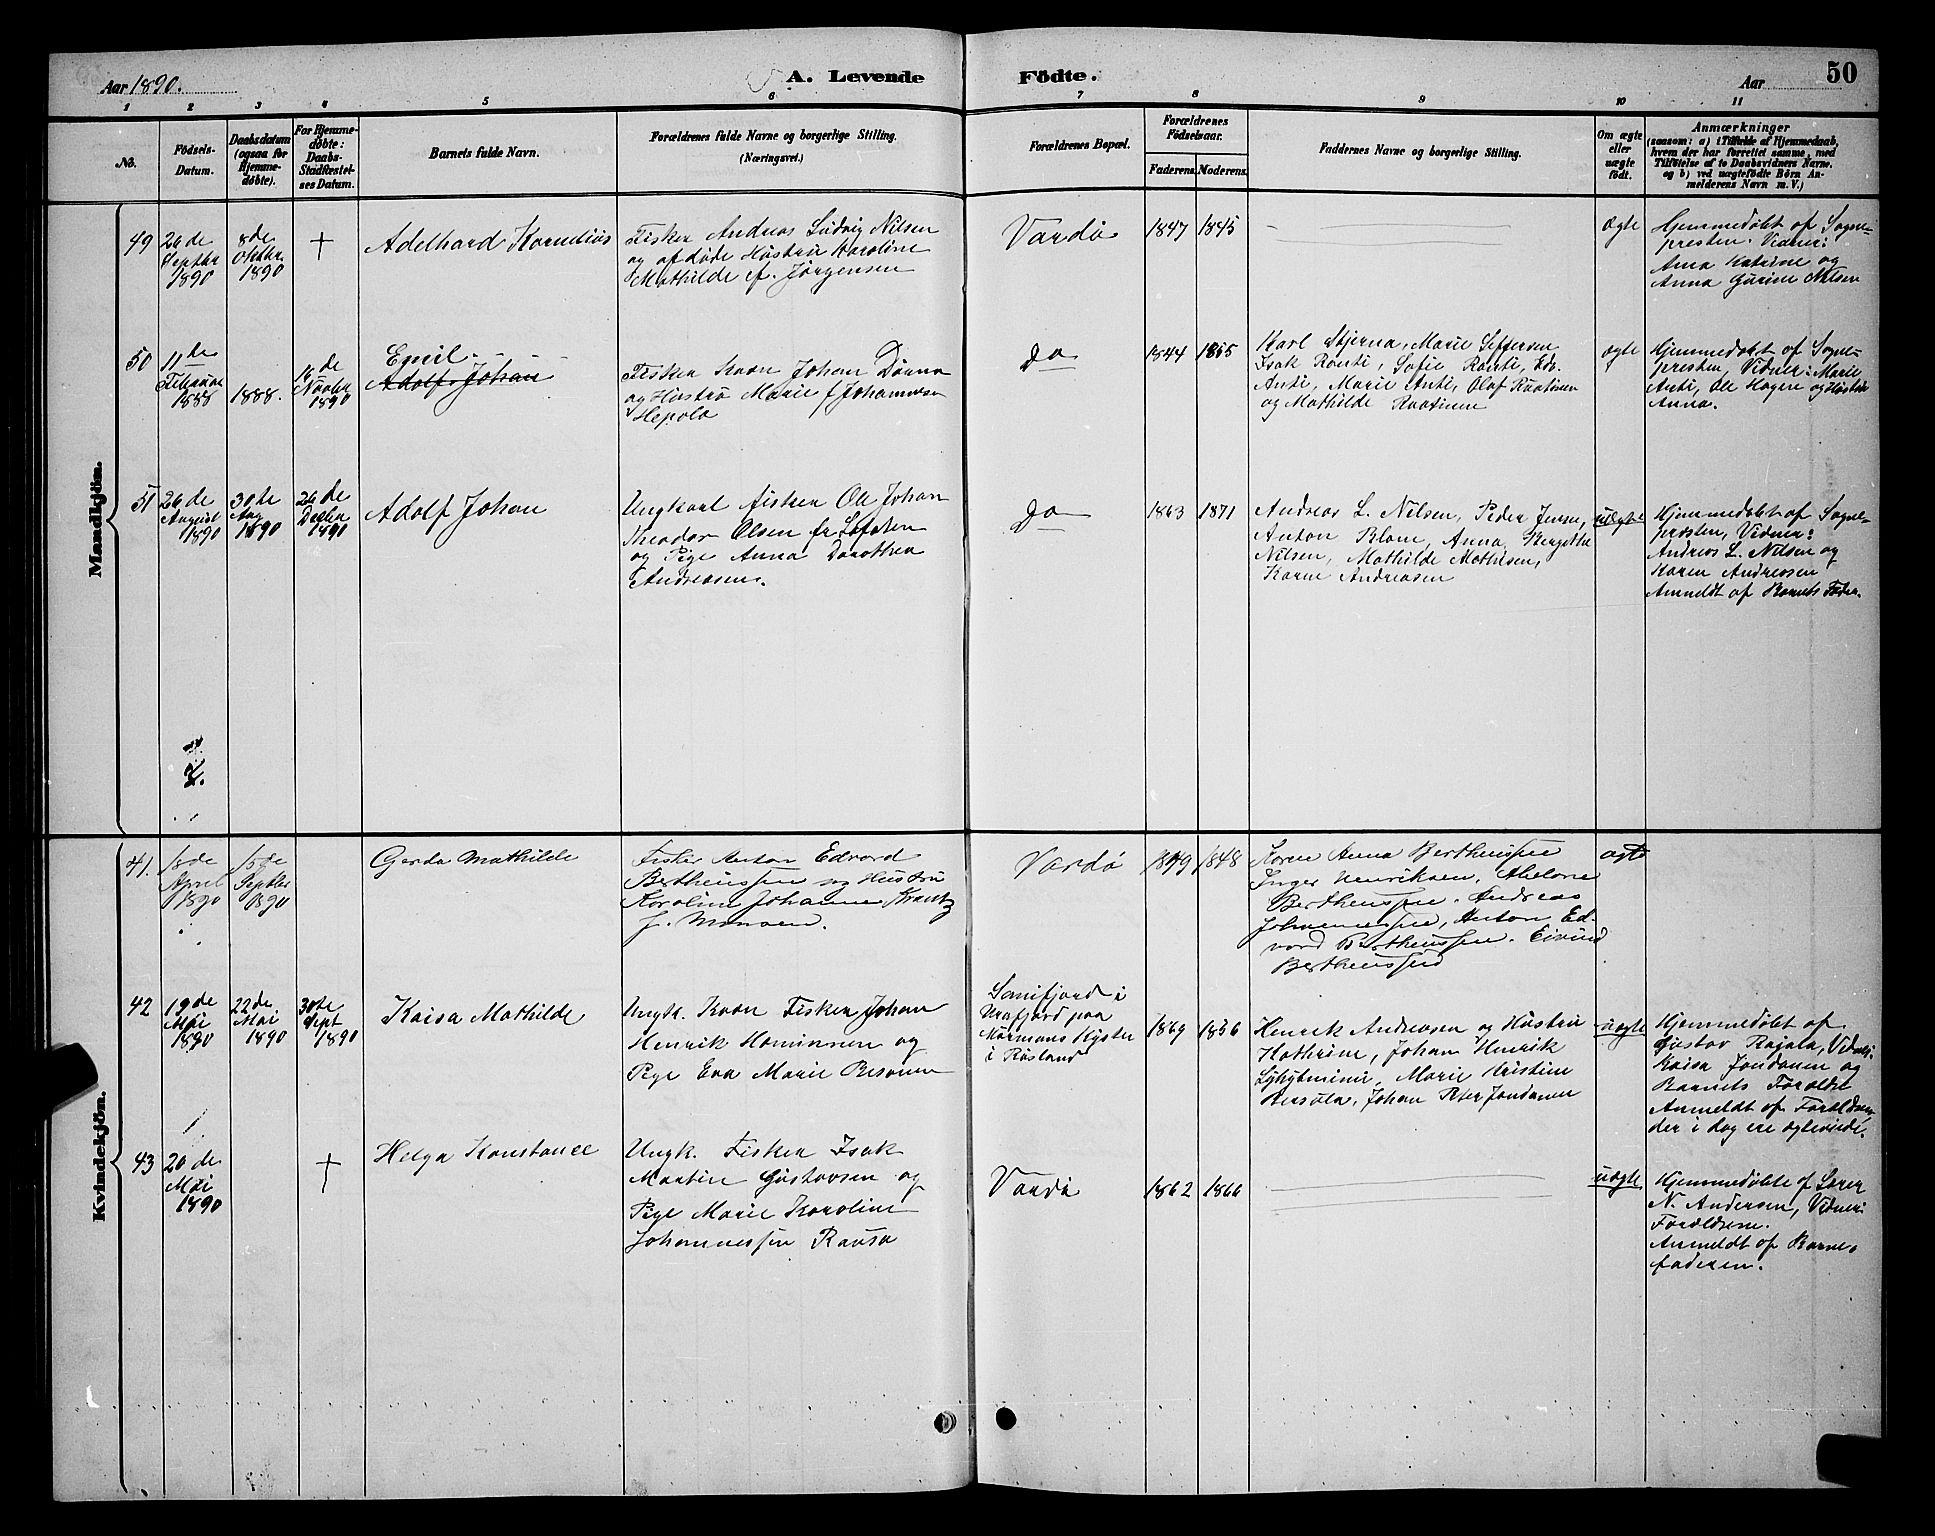 Aar 1890.
A. Levende
Födte.
Aar
50
1 2 3 4 5 6 7 8 9 10 11
No.
Födsels-
Datum.
Daabsdatum
(ogsaa for
Hjemme-
döbte).
For Hjemme-
döbte:
Daabs-
Stadfæstel-
ses Datum.
Barnets fulde Navn.
Forældrenes fulde Navne og borgerlige Stilling.
(Næringsvei.)
Forældrenes Bopæl.
Forældrenes
Födselsaar.
Faderens. Moderens.
Faddernes Navne og borgerlige Stilling.
Om ægte
eller
uægte
födt.
Anmærkninger
(saasom: a) i Tilfælde af Hjemmedaab,
hvem der har forrettet samme, med
Tilföielse af to Daabsvidners Navne.
og b) ved uægtefödte Börn An-
melderens Navn m. V.)
Mandkjön.
49
26de
Septbr
1890
8de
Oktbr.
1890
†
Adelhard Kornelius
Fisker Andreas Ludvig Nilsen
og afdøde Hustru Karoline
Mathilde f. Jørgensen
Vardø
1847 1845
ægte
Hjemmedøbt af Sogne-
presten. Vidner:
Ana Katrine og
Anna Gurine Nilsen
50
11de
Februar
1888
1888.
16de
Novbr
1890
Emil
Adolf Johan
Fisker Kvæn Johan Daana
og Hustru Marie f Johannesen
Hepola
Do
1844 1855
Karl Stjerna, Marie Seffersen
Isak Ronti, Sofie Ronti, Edv.
Anti, Marie Anti, Olaf Raatinen
og Mathilde Raatinen
ægte
Hjemmedøbt af Sogne-
presten, Vidner: Marie
Anti, Ole Hagen og Hustru
Anna.
51
26de
August
1890
30te
Aug
1890
26de
Decbr
1890
Adolf Johan
Ungkarl Fisker Ole Johan
Theodor Olsen fr Lofoten
og Pige Anna Dorothea
Andreasen.
Do
1863 1871
Andreas L. Nilsen, Peder Jensen,
Anton Blom, Anna Bergitte
Nilsen, Mathilde Mathisen,
Karen Andreasen
uægte
Hjemmedøbt af Sogne-
presten, Vidner:
Andreas L. Nilsen og
Karen Andreasen
Anmeldt af Barnets Fader.
Kvindekjön.
41.
18de
April
1890
15de
Septbr
1890
Gerda Mathilde
Fisker Anton Edvard
Bertheussen og Hustru
Karoline Johanne Krantz
f. Monsen.
Vardø
1849 1848
Karen Anna Bertheussen
Inger Henriksen, Abelone
Bertheussen. Andreas
Johannessen, Anton Ed-
vard Bertheussen. Eivind
Bertheussen
ægte
42
19de
Mai
1890
22de
Mai
1890
30te
Sept
1890
Kaisa Mathilde
Ungk. Kvæn Fisker Johan
Henrik Hominnen og
Pige Eva Marie Besonen
Semifjord i
Urafjord paa
Murmans Kysten
i Rusland
1869 1856
Henrik Andreasen og Hustru
Kathrine, Johan Henrik
Marie Kristine
Johan Peter Jondanen
uægte
Hjemmedøbt af
Gustav Rajala, Vidner:
Kaisa Jondanen og
Barnets Forældre
Anmeldt af Forældrene
der i dag ere egteviede.
43
20de
Mai
1890
†
Helga Konstance
Ungk. Fisker Isak
Martin Gustavsen og
Pige Marie Karoline
Johannessen Rausa
Vardø
1862 1866
uægte
Hjemmedøbte af Søren
N. Andersen, Vidner:
Forældrene.
Anmeldt af Barne-
faderen.